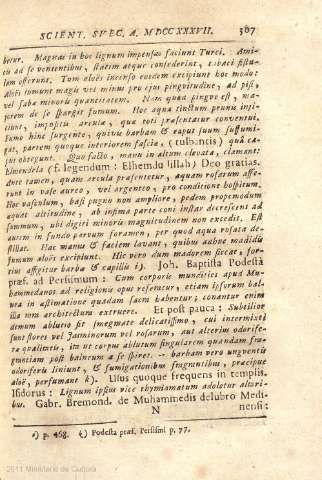 SCIENT. SVEC. A. MDCCXXXVII. 387
betur. Magnas in hoc lignum impensas faciunt Turci. Ami-
cu ad se venientibus, statim atque consederint, tabaci fistu-
lam offerunt. Tum aloës incenso eosdem excipiunt hoc modo:
Aloës fumum magis vel minus pro ejus pinguitudine, ad pisi,
vel fabæ minoris quantitatem. Nam quia pingue est,
jorem de se spargit fumum. Hoc aqua tinctum prunis inji-
ciunt, impositis arculæ, quæ toti præsentatur conventui.
Fumo hinc surgente, quivis barbam & caput suum suffumi-
gat, partem quoque interiorem fasciæ, (tulbantis) quâ ca-
put obtegunt. Quo facto, manu in altum elevata, clamant:
Elmendela (f. legendum: Elhemdu lillah) Deo gratias.
ante tamen, quam arcula præsentetur, aquam rosarum affe-
runt in vase aureo, vel argenteo, pro conditione hospitum.
Hoc vasculum, basi pugno non ampliore, pedem propemodum
æquat altitudine, ab infima parte coni instar decrescens ad
summum, ubi digiti minoris magnitudinem non excedit. Est
autem in fundo parvum foramen, per quod aqua rosata de-
stillat. Hac manus & faciem lavant, quibus adhuc madidis
fumum aloës excipiunt. Hic vero dum madorem siccat, for-
tius affigitur barbæ & capillis i). Joh. Baptista Podestà
præf. ad Persismum: Cum corporis mundities apud Mu-
hammedanos ad religionis opus referatur, etiam ipsorum bal-
nea in æstimatione quadam sacra habentur; conantur enim
illa non architectura extruere. Et post pauca: Subtilior
demum ablutio fit smegmate delicatissimo, cui intermixti
sunt flores vel Jasminorum vel rosarum, aut alterim odorife-
ra qualitatis, in ut corpus ablutum singularem quandam fra-
grantiam post balneum a se spiret. -- barbam vero unguento
odorifero liniunt, & fumigationibus fragrantibus, præcipue
aloë, perfumant k). Usus quoque frequens in templis.
Isidorus: Lignum ipsius vice thymiamatum adoletur altari-
bus. Gabr. Bremond. de Muhammedis delubro Medi-
N nensi:
i) p. 468. k) Podesta præf. Persismi p. 77.
2011 Ministerio de Cultura